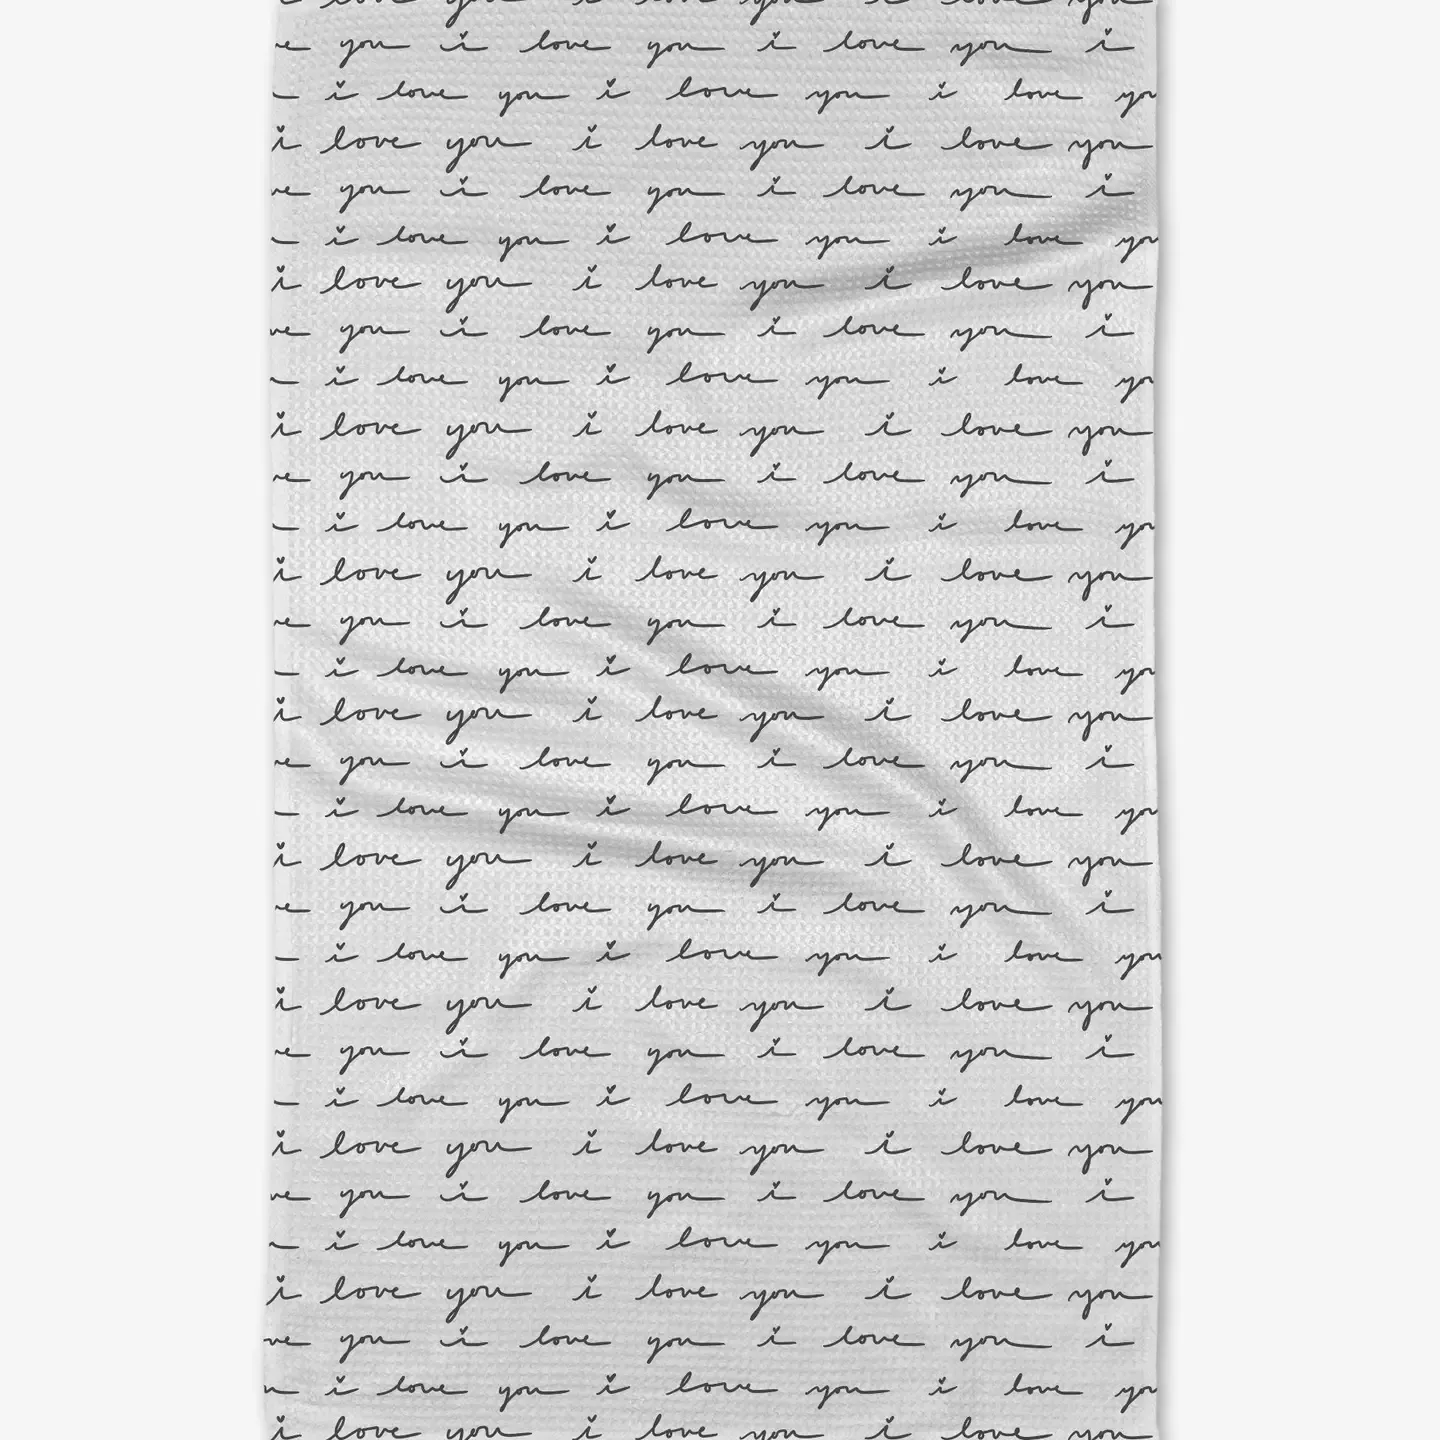 i love you i love you i love you
ve you i love you i love you i
i love you i love you i love yo
i love you i love you i love you
ve you i love you i love you i
i love you i love you i love yo
i love you i love you i love you
ve you i love you i love you i
i love you i love you i love yo
i love you i love you i love you
ve you i love you i love you i
i love you i love you i love yo
i love you i love you i love you
ve you i love you i love you i
i love you i love you i love yo
i love you i love you i love you
ve you i love you i love you i
i love you i love you i love yo
i love you i love you i love you
ve you i love you i love you i
i love you i love you i love you
i love you i love you i love you
ve you i love you i love you i
i love you i love you i love you
i love you i love you i love you
ve you i love you i love you i
i love you i love you i love you
i love you i love you i love you
ve you i love you i love you i
i love you i love you i love yo
i love you i love you i love you